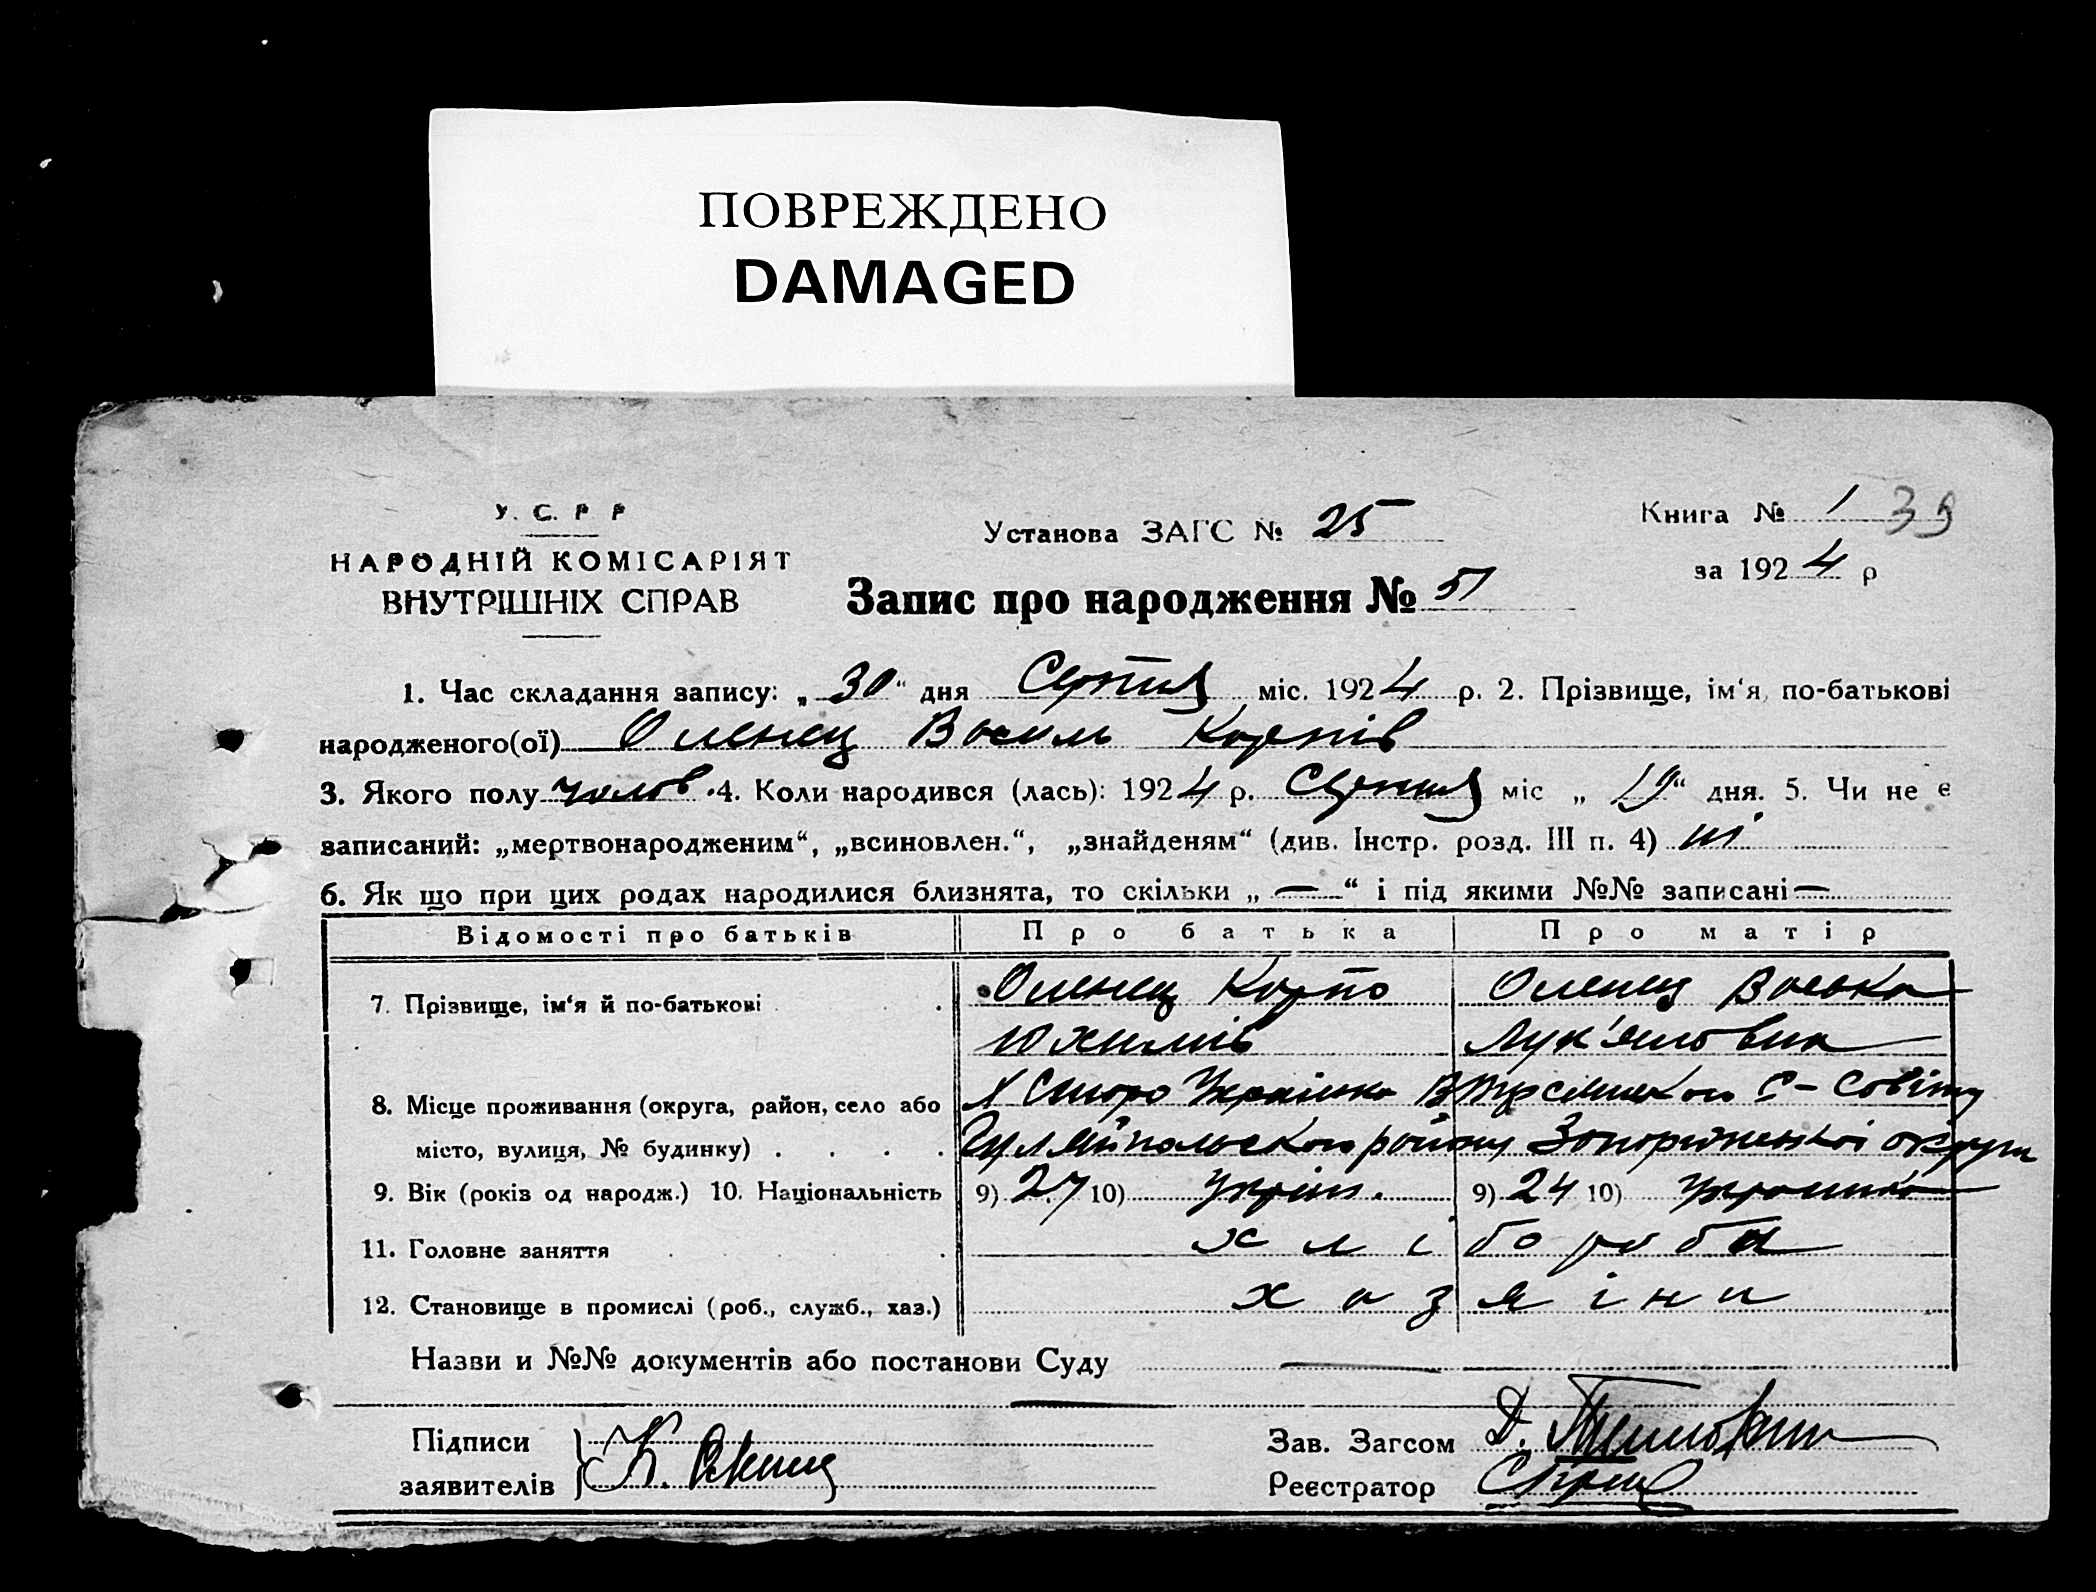 ПОВРЕЖДЕНО
DAMAGED
У. С. Р Р
НАРОДНІЙ КОМІСАРІЯТ
ВНУТРІШНІХ СПРАВ
Установа ЗАГС № 25
Запис про народження № 51
Книга № 1 39
за 1924 р
1. Час складання запису: „30“ дня Серпня міс. 1924 р. 2. Прізвище, ім‘я, по-батькові
народженого(ої) Оленец Василь Карпів
3. Якого полу чолов. 4. Коли народився (лась): 1924 р. Серпня міс „19“ дня. 5. Чи не є
записаний: „мертвонародженим“, „всиновлен.“, „знайденям“ (див. Інстр. розд. III п. 4) ні
6. Як що при цих родах народилися близнята, то скільки „—“ і під якими №№ записані —
Відомості про батьків Про батька Про матір
7. Прізвище, ім‘я й по-батькові Оленец Карпо Оленец Васька
Юхимів Лук'яновна
8. Місце проживання (округа, район, село або Х Староукраїнка с-совіту
місто, вулиця, № будинку) Гуляйпольского району Запорізької округи
9. Вік (років од народж.) 10. Національність 9) 27 10) Україн. 9) 24 10) Украинка
11. Головне заняття хлібороби
12. Становище в промислі (роб., служб., хаз.) хазяіни
Назви и №№ документів або постанови Суду —
Підписи
заявителів К. Оленец
Зав. Загсом Д.
Реєстратор